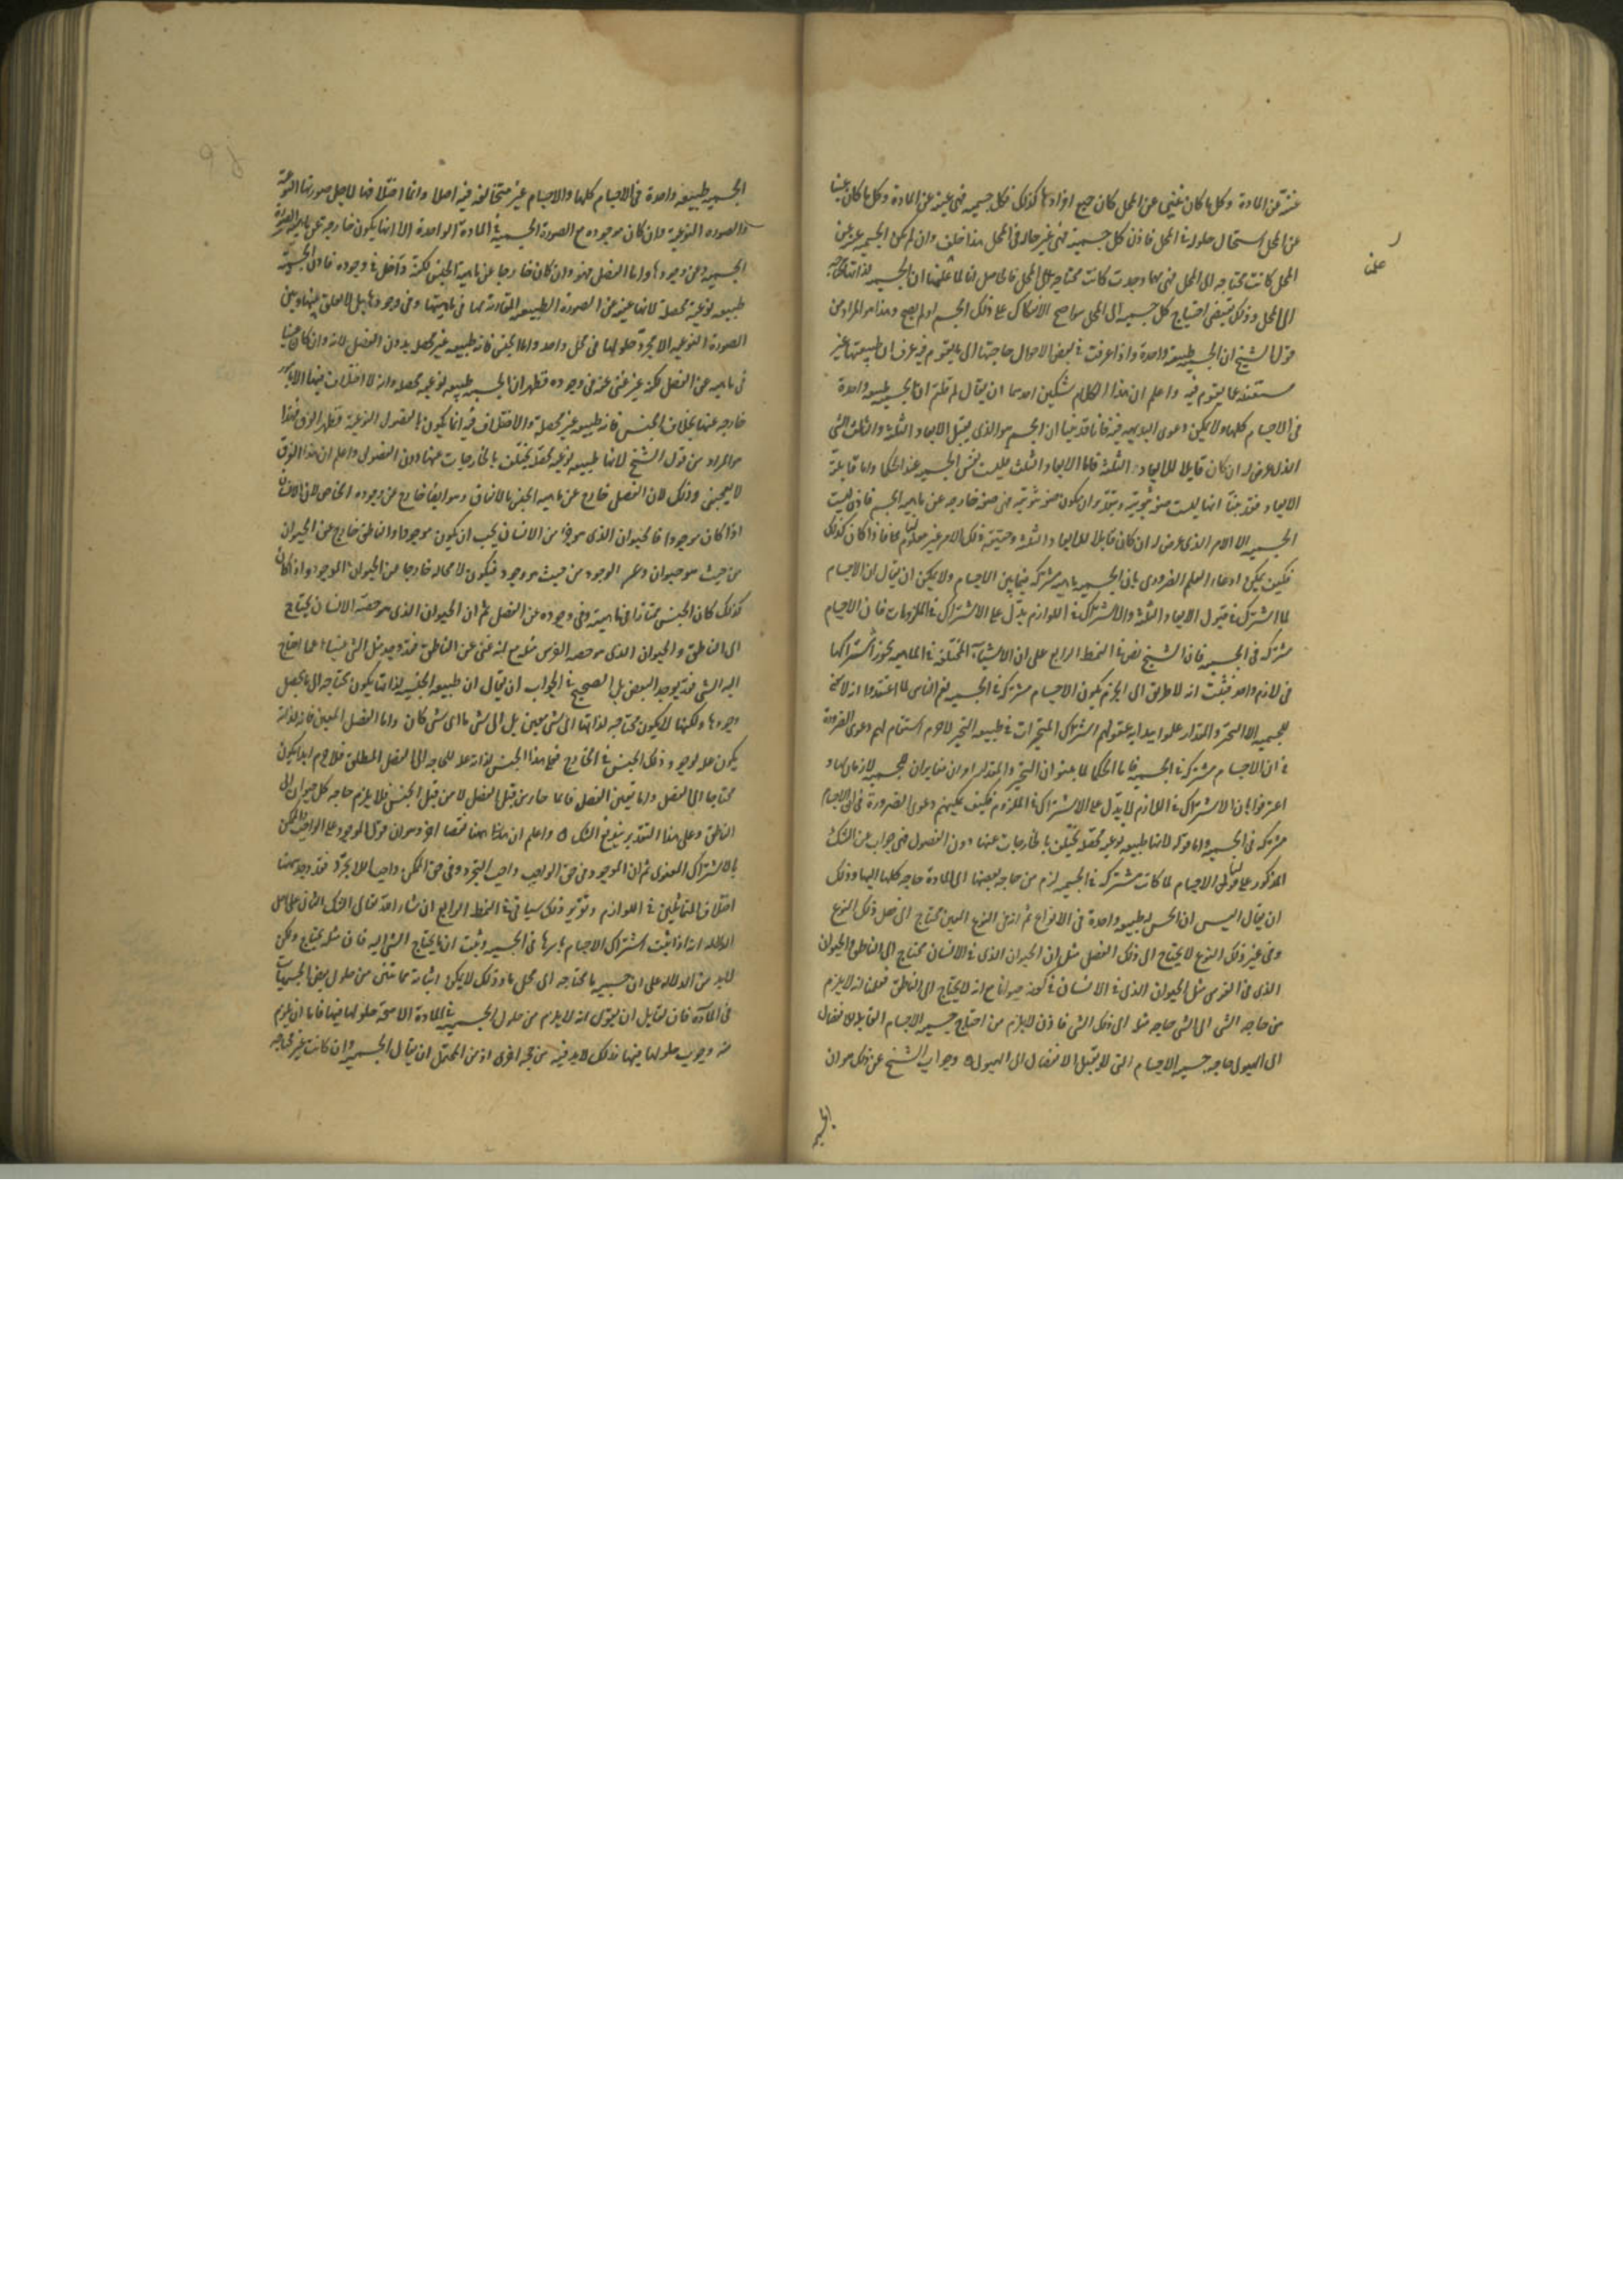 عن المادة وكل ما كان غنيا عن المحل كان جميع افرادها كذلك فكل جسمية فهى غنية عن المادة وكل ما كان غنيا
عن المحل استحال حلوله فى المحل فاذن كل جسمية فهى غير حالة فى المحل هذا خلف وان لم تكن الجسمية غنية عن
المحل كانت محتاجة الى المحل فهى مهما وجدت كانت محتاجة الى المحل فالحاصل انا لما علمنا ان الجسمية لذاتها محتاجة
الى المحل وذلك يقتضى احتياج كل جسمية الى المحل سواء صح الانفكاك على ذلك الجسم او لم يصح وهذا هو المراد من
قول الشيخ ان الجسمية طبيعة واحدة واذا عرفت فى بعض الاحوال حاجتها الى ما يقوم فيه عرف ان طبيعتها غير
مستغنية عما يقوم فيه واعلم ان هذا الكلام شكين احدهما ان يقال لم قلتم ان الجسمية طبيعة واحدة
فى الاجسام كلها ولا يمكن دعوى البديهة فيه فانا قد بينا ان الجسم هو الذى يقبل الابعاد الثلثة
الذى عرض له ان كان قابلا للابعاد الثلثة فاما الابعاد الثلث فليست نفس الجسمية عند الحكما واما قابلية
الابعاد فقد بينا انها ليست صفة ثبوتية وبتقدير ان يكون صفة ثبوتية فهى صفة خارجة عن ماهية الجسم فاذن ليست
الجسمية الا الامر الذى عرض له ان كان قابلا للابعاد الثلثة وحقيقة ذلك الامر غير معلوم لنا فاذا كان كذلك
فكيف يمكن ادعاء العلم الضرورى بان الجسمية ماهية مشتركة فيما بين الاجسام ولا يمكن ان يقال ان الاجسام
لما اشتركت فى قبول الابعاد الثلثة والاشتراك فى اللوازم يدل على الاشتراك فى الملزومات فان الاجسام
مشتركة فى الجسمية فان الشيخ نص فى النمط الرابع على ان الاشياء المختلفة فى الماهية يجوز اشتراكها
فى لازم واحد فثبت انه لا طريق الى الجزم بكون الاجسام مشتركة فى الجسمية نعم الناس لما اعتقدوا انه لا معنى
للجسمية الا التحيز والمقدار علموا ببداية عقولهم اشتراك المتحيزات فى طبيعة التحيز لا جرم استقام لهم دعوى الضرورة
فى ان الاجسام مشتركة فى الجسمية فاما الحكما لما بينوا ان التحيز والمقدار امران مغايران للجسمية لازمان لها و
اعترفوا بان الاشتراك فى اللازم لا يدل على الاشتراك فى الملزوم فكيف يمكنهم دعوى الضرورة فى ان الاجسام
مشتركة فى الجسمية واما قوله لانها طبيعة نوعية محصلة يختلف بالخارجات عنها دون الفصول فهى جواب عن الشك
المذكور على قولنا ان الاجسام لما كانت مشتركة فى الجسمية لزم من حاجة بعضها الى المادة حاجة كلها اليها وذلك
ان يقال اليس ان الجنس طبيعة واحدة فى الانواع ثم انه فى النوع المعين محتاج الى فصل ذلك النوع
وفى غير ذلك النوع لا يحتاج الى ذلك الفصل مثل ان الحيوان الذى فى الانسان محتاج الى الناطق والحيوان
الذى فى الفرس مثل الحيوان الذى فى الانسان فى كونه حيوانا مع انه لا يحتاج الى الناطق فعلمنا انه لا يلزم
من حاجة الشى الى الشى حاجة مثله الى ذلك الشى فاذن لا يلزم من احتياج جسمية الاجسام القابلة للانفصال
الى الهيولى حاجة جسمية الاجسام التى لا يقبل الانفصال الى الهيولى وجواب الشيخ عن ذلك هو ان
الجسمية طبيعة واحدة فى الاجسام كلها والاجسام غير متخالفة فيه اصلا وانما اختلافها لاجل صورتها النوعية
والصورة النوعية وان كان موجودة مع الصورة الجسمية فى المادة الواحدة الا انها يكون خارجة عن ماهية الصورة
الجسمية وعن وجودها واما الفصل فهو وان كان خارجا عن ماهية الجنس لكنه داخل فى وجوده فاذن الجسمية
طبيعة نوعية محصلة لانها غنية عن الصورة الطبيعية المقارنة لها فى ماهيتها وفى وجودها بل لا تعلق بينها وبين
الصورة النوعية الا بمجرد حلولها فى محل واحد واما الجنس فانه طبيعة غير محصلة بدون الفصل لانه وان كان غنيا
فى ماهيته عن الفصل لكنه غير غنى عنه فى وجوده فظهر ان الجسمية طبيعة نوعية محصلة وانه لا اختلاف فيها الا بامور
خارجة عنها بخلاف الجنس فانه طبيعة غير محصلة والاختلاف فيه انما يكون بالفصول النوعية فظهر الفرق فهذا
هو المراد من قول الشيخ لانها طبيعة نوعية محصلة يختلف بالخارجات عنها دون الفصول واعلم ان هذا الفرق
لا يعجبنى وذلك لان الفصل خارج عن ماهية الجنس بالاتفاق وهو ايضا خارج عن وجوده الخاص لان الانسان
اذا كان موجودا فالحيوان الذى هو جزء من الانسان يجب ان يكون موجودا والناطق خارج عن الحيوان
من حيث هو حيوان وعن الوجود من حيث هو وجود فيكون لا محالة خارجا عن الحيوان الموجود واذا كان
كذلك كان الجنس ممتازا فى ماهيته وفى وجوده عن الفصل ثم ان الحيوان الذى هو حصة الانسان يحتاج
الى الناطق والحيوان الذى هو حصة الفرس مثله مع انه غنى عن الناطق فقد وجد مثل الشى غنيا عما احتاج
اليه الشى بل الصحيح فى الجواب ان يقال ان طبيعة الجنسية لذاتها يكون محتاجة الى ما يحصل
وجودها ولكنها لا يكون محتاجة لذاتها الى شى معين بل الى شى ما اى شى كان واما الفصل المعين فانه لذاته
يكون علة لوجود ذلك الجنس فى الخارج فهذا الجنس لذاته علة للحاجة الى الفصل المطلق فلا جرم ابدا يكون
محتاجا الى الفصل واما تعين الفصل فانما جاء من قبل الفصل لا من قبل الجنس فلا يلزم حاجة كل حيوان الى
الناطق وعلى هذا التقدير يندفع الشك واعلم ان هاهنا نقضا اخر وهو ان قول الموجود على الواجب والممكن
بالاشتراك المعنوى ثم ان الوجود فى حق الواجب واجب التجرد وفى حق الممكن واجب اللا تجرد فقد وجد هاهنا
اختلاف المتماثلين فى اللوازم وتقرير ذلك سياتى فى النمط الرابع ان شاء الله تعالى الشك الثانى على اصل
الدلالة انه اذا ثبت اشتراك الاجسام باسرها فى الجسمية وثبت ان ما يحتاج الشى اليه فان مثله يحتاج ولكن
لابد من الدلالة على ان جسمية ما محتاجة الى محل ما وذلك لا يمكن اثباته
فى المادة فان لقائل ان يقول انه لا يلزم من حلول الجسمية فى المادة الا صحة حلولها فيها فاما ان يلزم
منه وجوب حلولها فيها فذلك لابد فيه من حجة اخرى اذ من المحتمل ان يقال الجسمية وان كانت غير محتاجة